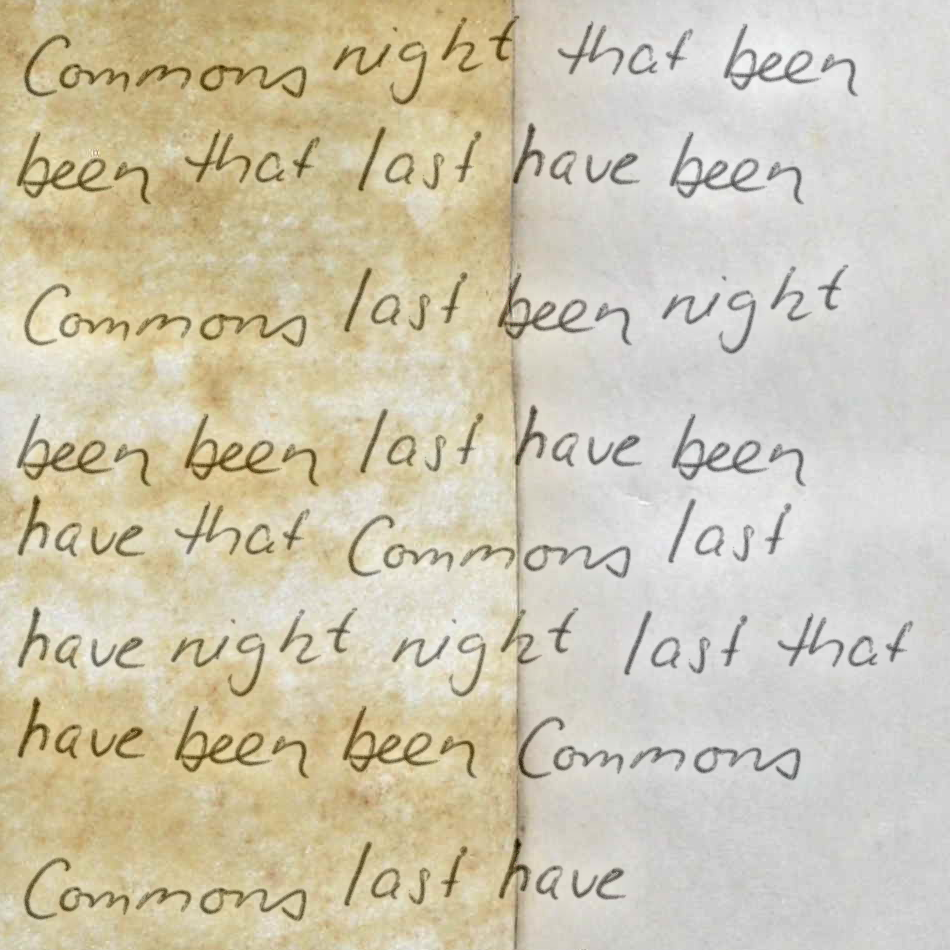 Commons night that been
been that last have been
Commons last been night
been been last have been
have that Commons last
have night night last that
have been been Commons
Commons last have